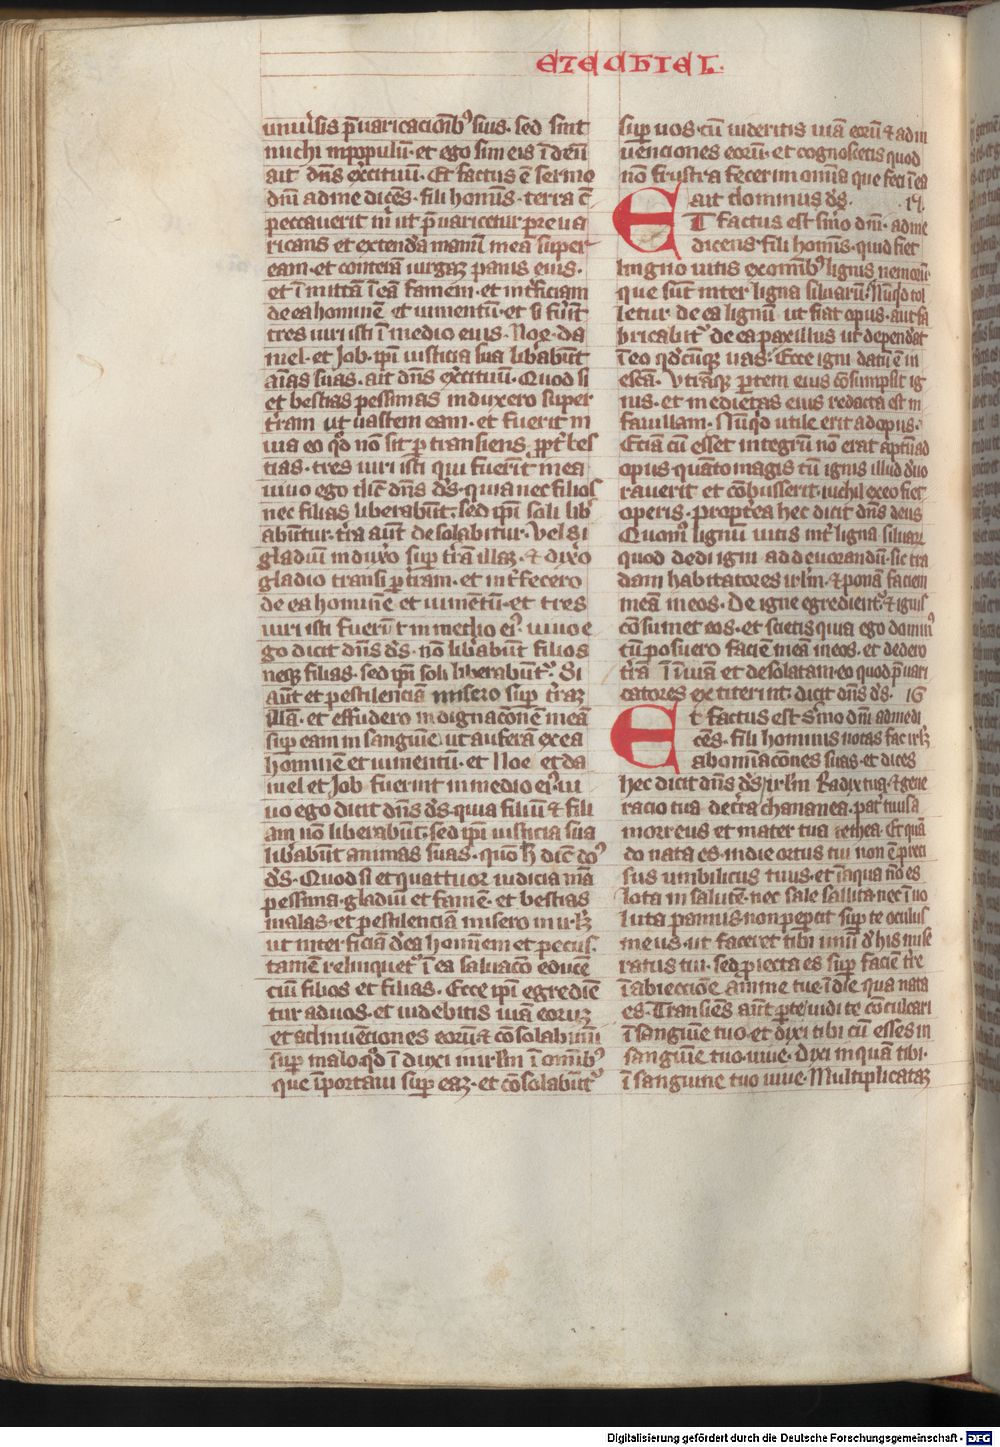 EZECHIEL
uniu'sis p̄uaricacionib' suis. sed sint
michi in populū. et ego sim eis ī deū
ait dn̄s ex̄cituū. Et factus ē sermo
dn̄i ad me dicēs. fili homīs. terra cū
peccauerit m̄ ut p̄uaricetur p̄reua
ricans et extendā manū meā super
eam. et conterā uirgaꝫ panis eius.
et ī mittā ī eā famem. et int̄ficiam
de ea hominē et iumentū. et si fūit
tres uiri isti ī medio eius. Noe. da
niel. et Job. ip̄i iusticia sua lib̄abūt
aīas suas. ait dn̄s ex̄cituū. Quod si
et bestias pessimas induxero super
t̄ram ut uastem eam. et fuerit in
uia eo qd̄ nō sit p̄ transiens ppt̄ bes
tias. tres uiri isti qui fuerīt in ea
uiuo ego dic̄ dn̄s ds̄. quia nec filios
nec filias liberabūt. sed ip̄i soli lib̄
abūtur. t̄ra aūt desolabitur. Vel si
gladiū indux̄o sup̄ t̄rā illaꝫ. ⁊ dix̄o
gladio transi p̄ t̄ram. et int̄fecero
de ea hominē et iumentū. et tres
uiri isti fuerīt in medio ei'. uiuo e
go dicit dn̄s ds̄. nō lib̄abūt filios
neqꝫ filias. sed ip̄i soli liberabūt'. Si
aūt et pestilenciā misero sup̄ t̄raꝫ
illā. et effudero indignacōnē meā
sup̄ eam in sanguīe. ut auferā ex ea
hominē et iumentū. et Noe et da
niel et Job fuerint in medio ei'. ui
uo ego dicit dn̄s ds̄. quia filiū ⁊ fili
am nō liberabūt. sed ip̄i iusticia sua
lib̄abūt animas suas. quō h̄ dic̄ do'
ds̄. Quod si et quattuor iudicia mā
pessima. gladiū et famē. et bestias
malas. et pestilenciā misero in ir̄lꝫ
ut interficiā d̄ ea hominem et pecus.
tamē relinquet' ī ea saluacō educē
ciū filios et filias. Ecce ip̄i egrediē
tur ad uos. et uidebitis uiā eoruꝫ
et adinuēciones eorū. ⁊ cōsolabimī
sup̄ malo. qd̄ ī duxi in ir̄lm ī omīb'
que īportaui sup̄ eaꝫ. et cōsolabūt'
sup̄ uos. cū uideritis uiā eorū ⁊ adin
uenciones eorū. et cognoscetis quod
nō frustra fecerim omīa que feci ī ea
ait dominus ds̄. .15.
ET factus est s̄mo dn̄i. ad me
dicens. fili homīs. quid fiet
ligno uitis ex omīb' lignis nemorū.
que sūt inter ligna siluarū. Nūqd̄ tol
letur de ea lignū ut fiat opus. aut fa
bricabit' de ea paxillus ut depend̄at
ī eo qd̄cūqꝫ uas. Ecce igni datū ē in
escā. Vtrāqꝫ p̄tem eius cōsumpsit ig
nis. et medietas eius redacta est in
fauillam. Nūqd̄ utile erit ad opus.
Etiā cū esset integrū nō erat aptū ad
opus. quāto magis cū ignis illud d'uo
rauerit et cōbusserit. nichil ex eo fiet
operis. propt̄ea hec dicit dn̄s deus
Quom̄ lignū uitis int̄ ligna siluaꝝ
quod dedi igni ad deuorandū. sic tra
dam habitatores ir̄lm. ⁊ ponā faciem
meā in eos. De igne egredient' ⁊ ignis
cōsumet eos. et scietis quia ego domin'
cū posuero faciē meā in eos. et dedero
t̄rā īuiā et desolatam. eo quod p̄uari
catores extiterint. dicit dn̄s ds̄. 16
Et factus est s̄mo dn̄i ad me di
cēs. fili hominis notas fac ir̄lꝫ
abomīacōnes suas. et dices
hec dicit dn̄s ds̄ ir̄lm Radix tua. ⁊ gene
racio tua de t̄ra chananea. pat̄ tuus a
morreus et mater tua cethea. Et quā
do nata es. in die ortus tui non ē preci
sus umbilicus tuus. et ī aqua nō es
lota in salutē. nec sale sallita. nec īuo
luta pannis. non pep̄cit sup̄ te oculus
meus. ut faceret tibi unū d̄ his mise
ratus tui. sed p̄iecta es sup̄ faciē t̄re
ī abieccīoe anime tue ī die qua nata
es. Transiēs aūt p̄ te. uidi te cōculcari
ī sanguīe tuo. et dixi tibi cū esses in
sanguīe tuo. uiue. dixi inquā tibi.
ī sanguine tuo uiue. Multiplicataꝫ
Digitalisierung gefördert durch die Deutsche Forschungsgemeinschaft - DFG